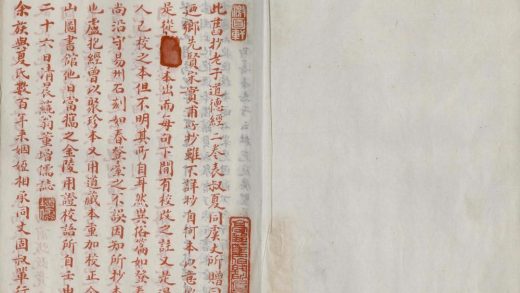 此舊抄老子道德經二卷表叔夏同虞丈所贈
迺鄉先賢宋賓甫所抄雖不詳抄自何本也意
是從本出而每句下間有校改之註又是過
人已校之本但不明其所自耳然與俗篇如登
尚沿守易州石刻如春登臺之不誤因知所抄
也盧抱經曾以聚珍本又用道藏本重加校正
山圖書館他日當攜之金陵用證校語所自壬
二十六日清晨蘓翁董增儒誌
余族與夏氏數百年來姻婭相承同丈固叔輩行